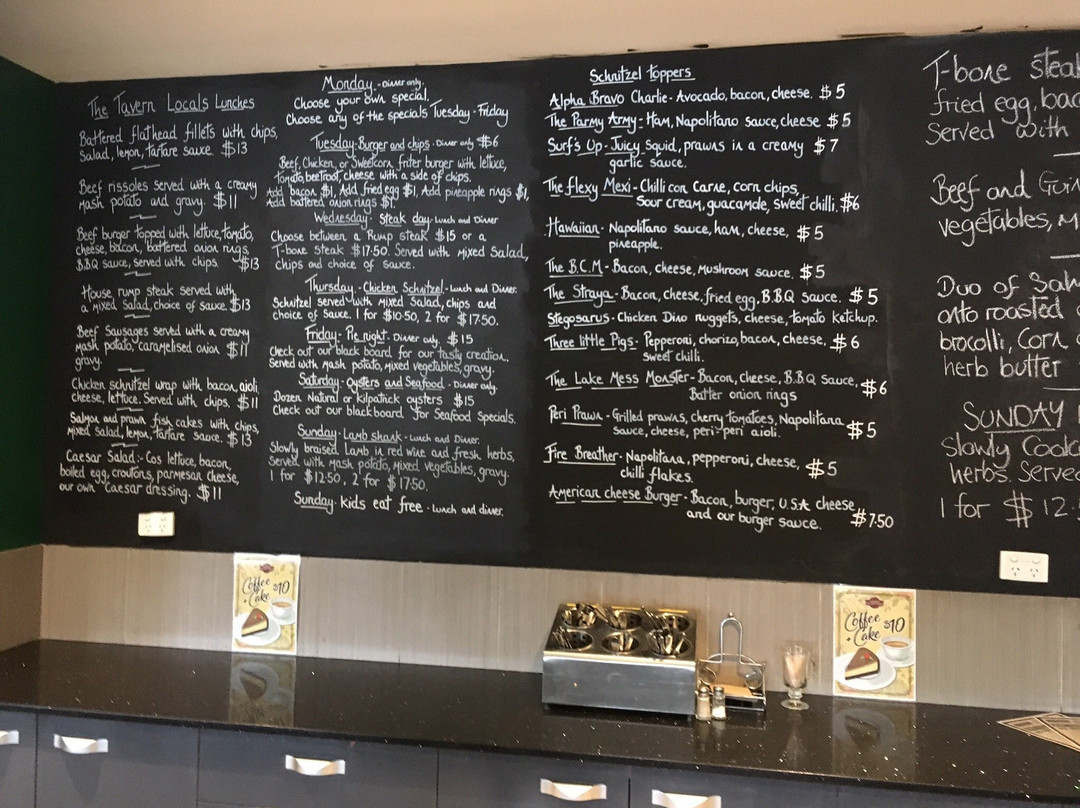 The Tavern Locals Lunches
Battered flathead fillets with chips,
Salad, lemon, tartare sauce. $13
Beef rissoles served with a creamy
Mash potato and gravy. $11
Beef burger topped with lettuce, tomato,
cheese, bacon, battered onion rings,
B.B.Q sauce, served with chips. $13
House rump steak served with
a mixed salad, choice of sauce. $13
Beef Sausages served with a creamy
Mash potato, caramelised onion $11
gravy.
Chicken schnitzel wrap with bacon, aioli
cheese, lettuce. Served with chips. $11
Salmon and prawn fish cakes with chips,
Mixed salad, lemon, tartare sauce. $13
Caesar Salad:- Cos lettuce, bacon,
boiled egg, croutons, parmesan cheese,
our own Caesar dressing. $11
Monday - Dinner only.
Choose your own special.
Choose any of the specials Tuesday - Friday
Tuesday - Burger and chips - Dinner only $6
Beef, Chicken, or Sweetcorn, friter burger with lettuce,
tomato, beetroot, cheese with a side of chips.
Add bacon $1, Add fried egg $1, Add pineapple rings $1,
Add battered onion rings $1.
Wednesday - Steak day - Lunch and Dinner
Choose between a Rump steak $15 or a
T-bone steak $17.50. Served with Mixed Salad,
chips and choice of sauce.
Thursday - Chicken Schnitzel - Lunch and Dinner.
Schnitzel served with mixed Salad, chips and
choice of sauce. 1 for $10.50, 2 for $17.50.
Friday - Pie night - Dinner only. $15
Check out our black board for our tasty creation.
Served with Mash potato, Mixed vegetables, gravy.
Saturday - Oysters and Seafood - Dinner only.
Dozen Natural or kilpatrick oysters $15
Check out our blackboard for Seafood Specials.
Sunday - Lamb shank - Lunch and Dinner.
Slowly braised Lamb in red wine and fresh herbs,
Served with mash potato, Mixed vegetables, gravy.
1 for $12.50, 2 for $17.50.
Sunday - kids eat free - Lunch and dinner.
Schnitzel toppers
Alpha Bravo Charlie - Avocado, bacon, cheese. $5
The Parmy Army - Ham, Napolitano sauce, cheese $5
Surf's Up - Juicy Squid, prawns in a creamy $7
garlic sauce.
The flexy Mexi - Chilli con Carne, corn chips,
Sour cream, guacamole, sweet chilli. $6
Hawaiian - Napolitano sauce, ham, cheese, $5
pineapple.
The B.C.M - Bacon, cheese, Mushroom sauce. $5
The Straya - Bacon, cheese, fried egg, B.B.Q sauce. $5
Stegosarus - Chicken Dino nuggets, cheese, tomato ketchup.
Three little Pigs - Pepperoni, chorizo, bacon, cheese, $6
sweet chilli.
The Lake Mess Monster - Bacon, cheese, B.B.Q sauce, $6
Batter onion rings
Peri Prawn - Grilled prawns, cherry tomatoes, Napolitana $5
Sauce, cheese, peri-peri aioli.
Fire Breather - Napolitana, pepperoni, cheese, $5
chilli flakes.
American cheese Burger - Bacon, burger, U.S.A cheese
and our burger sauce. $7.50
T-bone steak
fried egg, bac
Served with
Beef and Guin
vegetables, M
Duo of Salm
onto roasted
brocolli, Corn
herb butter
SUNDAY
Slowly Cook
herbs. Serve
1 for $12.
Coffee
+ Cake $10
Coffee
+ Cake $10